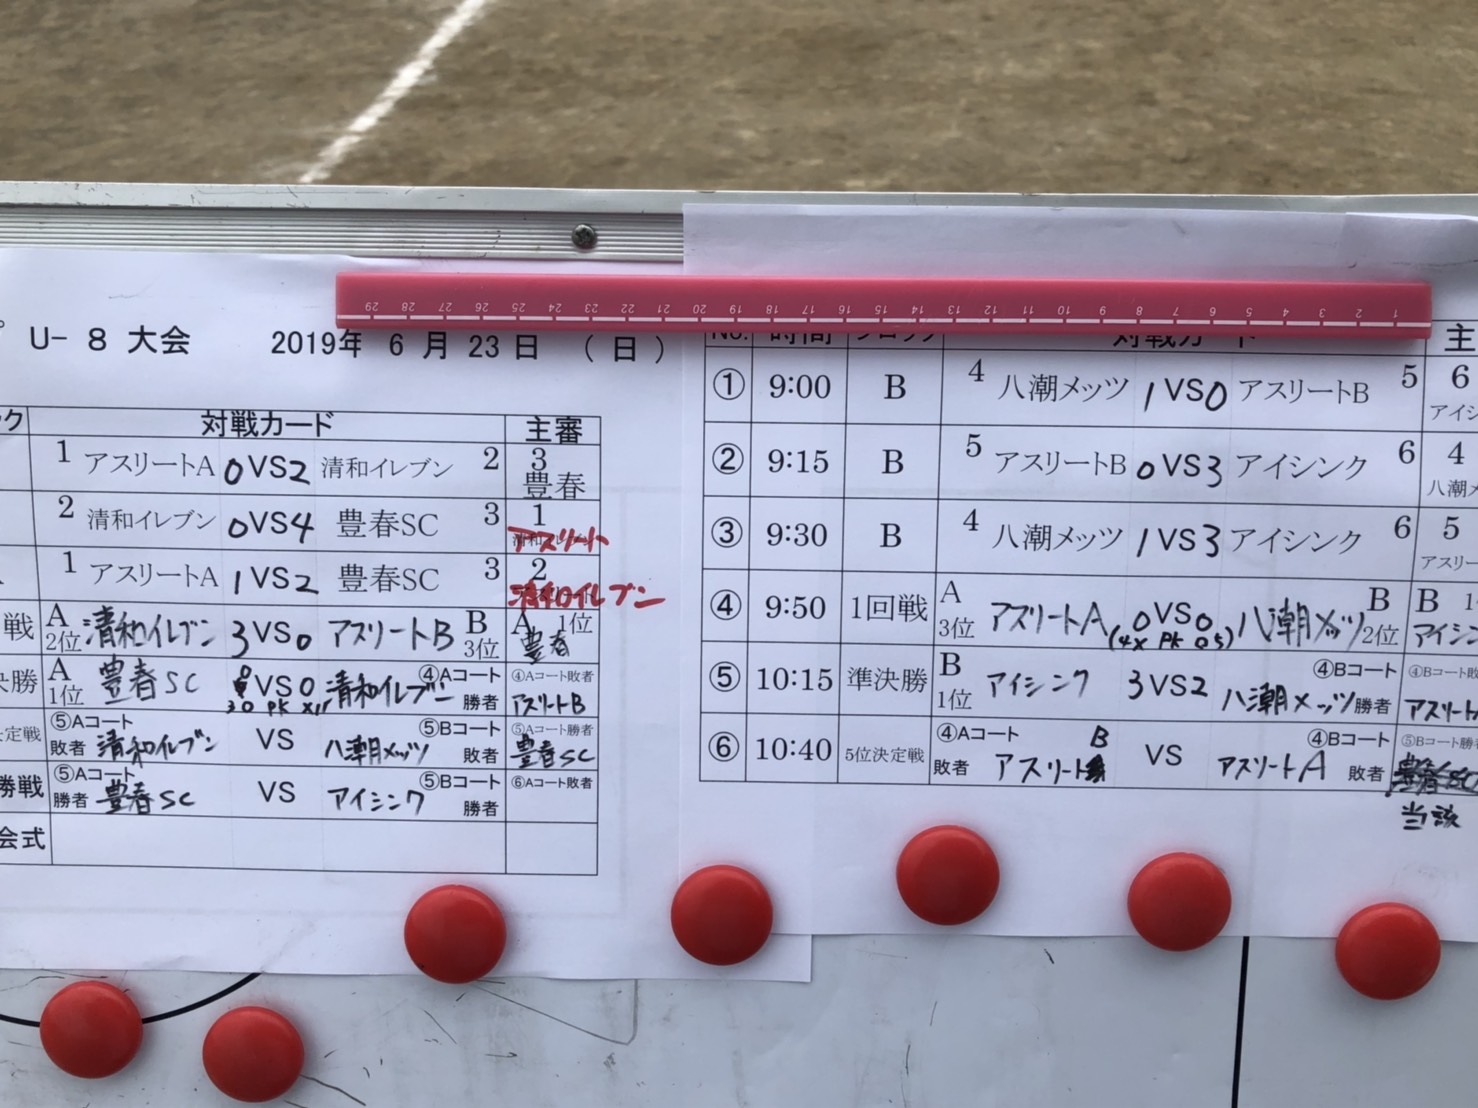 U-8 大会 2019年 6 月 23 日 (日)
対戦カード 主審
1 アスリートA 0 VS 2 清和イレブン 2 3 豊春
2 清和イレブン 0 VS 4 豊春SC 3 1 アスリート
1 アスリートA 1 VS 2 豊春SC 3 2 清和イレブン
戦 A 2位 清和イレブン 3 VS 0 アスリートB B 3位 A 1位 豊春
決勝 A 1位 豊春SC 0 VS 0 清和イレブン ④Aコート勝者 ④Aコート敗者 アスリートB
3 0 PK
決定戦 ⑤Aコート敗者 清和イレブン VS 八潮メッツ ⑤Bコート敗者 ⑤Aコート勝者 豊春SC
勝戦 ⑤Aコート勝者 豊春SC VS アイシンク ⑤Bコート勝者 ⑥Aコート敗者
会式
29 28 27 26 25 24 23 22 21 20 19 18 17 16 15 14 13 12 11 10 9 8 7 6 5 4 3 2 1
No. 時間 ブロック 対戦カード 主
① 9:00 B 4 八潮メッツ 1 VS 0 アスリートB 5 6 アイシ
② 9:15 B 5 アスリートB 0 VS 3 アイシンク 6 4 八潮メ
③ 9:30 B 4 八潮メッツ 1 VS 3 アイシンク 6 5 アスリー
④ 9:50 1回戦 A 3位 アスリートA 0 VS 0 八潮メッツ B 2位 B 1 アイシン
(4x PK 05)
⑤ 10:15 準決勝 B 1位 アイシンク 3 VS 2 八潮メッツ ④Bコート勝者 ④Bコート敗 アスリート
⑥ 10:40 5位決定戦 ④Aコート敗者 アスリート B VS アスリートA ④Bコート敗者 ⑤Bコート勝者
当該